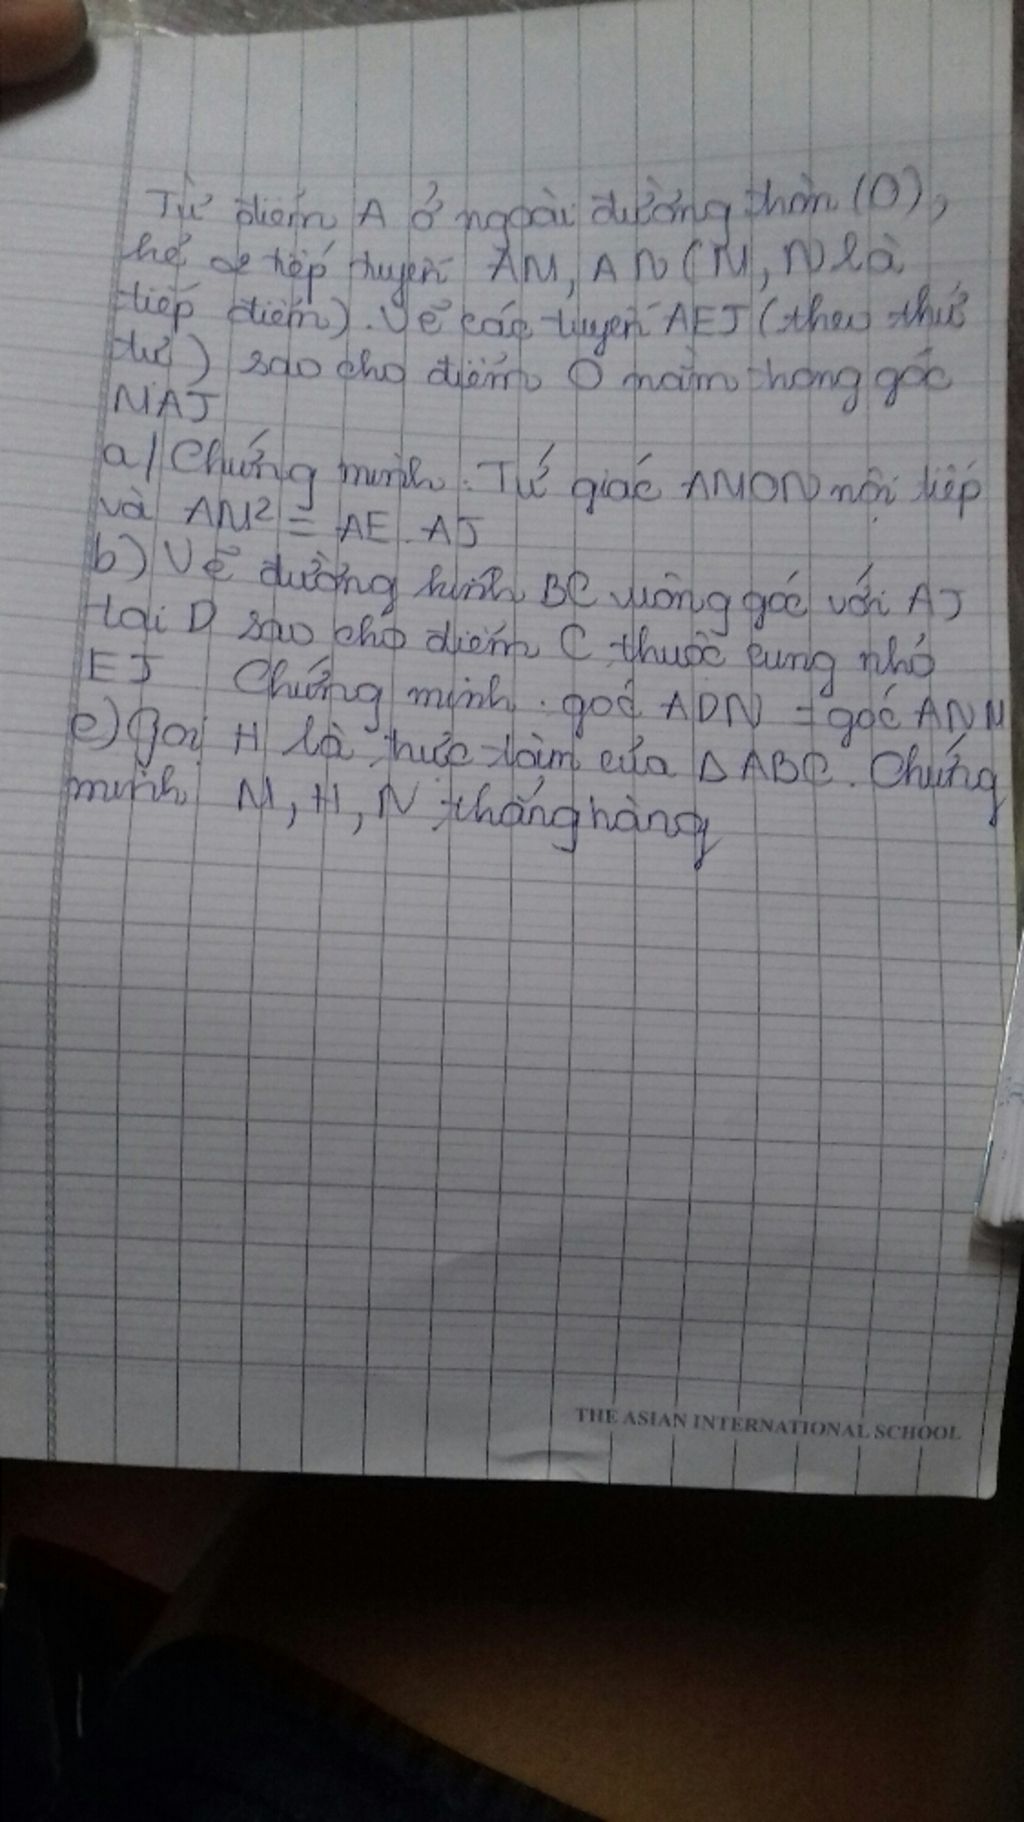 Từ điểm A ở ngoài đường tròn (O),
kẻ 2 tiếp tuyến AM, AN (M, N là
tiếp điểm). Vẽ cát tuyến AEJ (theo thứ
tự) sao cho điểm O nằm trong góc
NAJ
a/ Chứng minh: Tứ giác AMON nội tiếp
và AM² = AE.AJ
b) Vẽ đường kính BC vuông góc với AJ
tại D sao cho điểm C thuộc cung nhỏ
EJ Chứng minh: góc ADN = góc ANM
c) Gọi H là trực tâm của ΔABC. Chứng
minh M, H, N thẳng hàng
THE ASIAN INTERNATIONAL SCHOOL